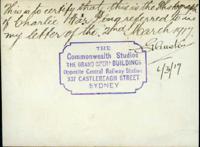 This is to certify that this is the Photograph
of Charlie referred to in
my letter of the 2nd March 1917.
6/3/17
THE
Commonwealth Studios
THE GRAND OPERA BUILDINGS
Opposite Central Railway Station
837 CASTLEREAGH STREET
SYDNEY